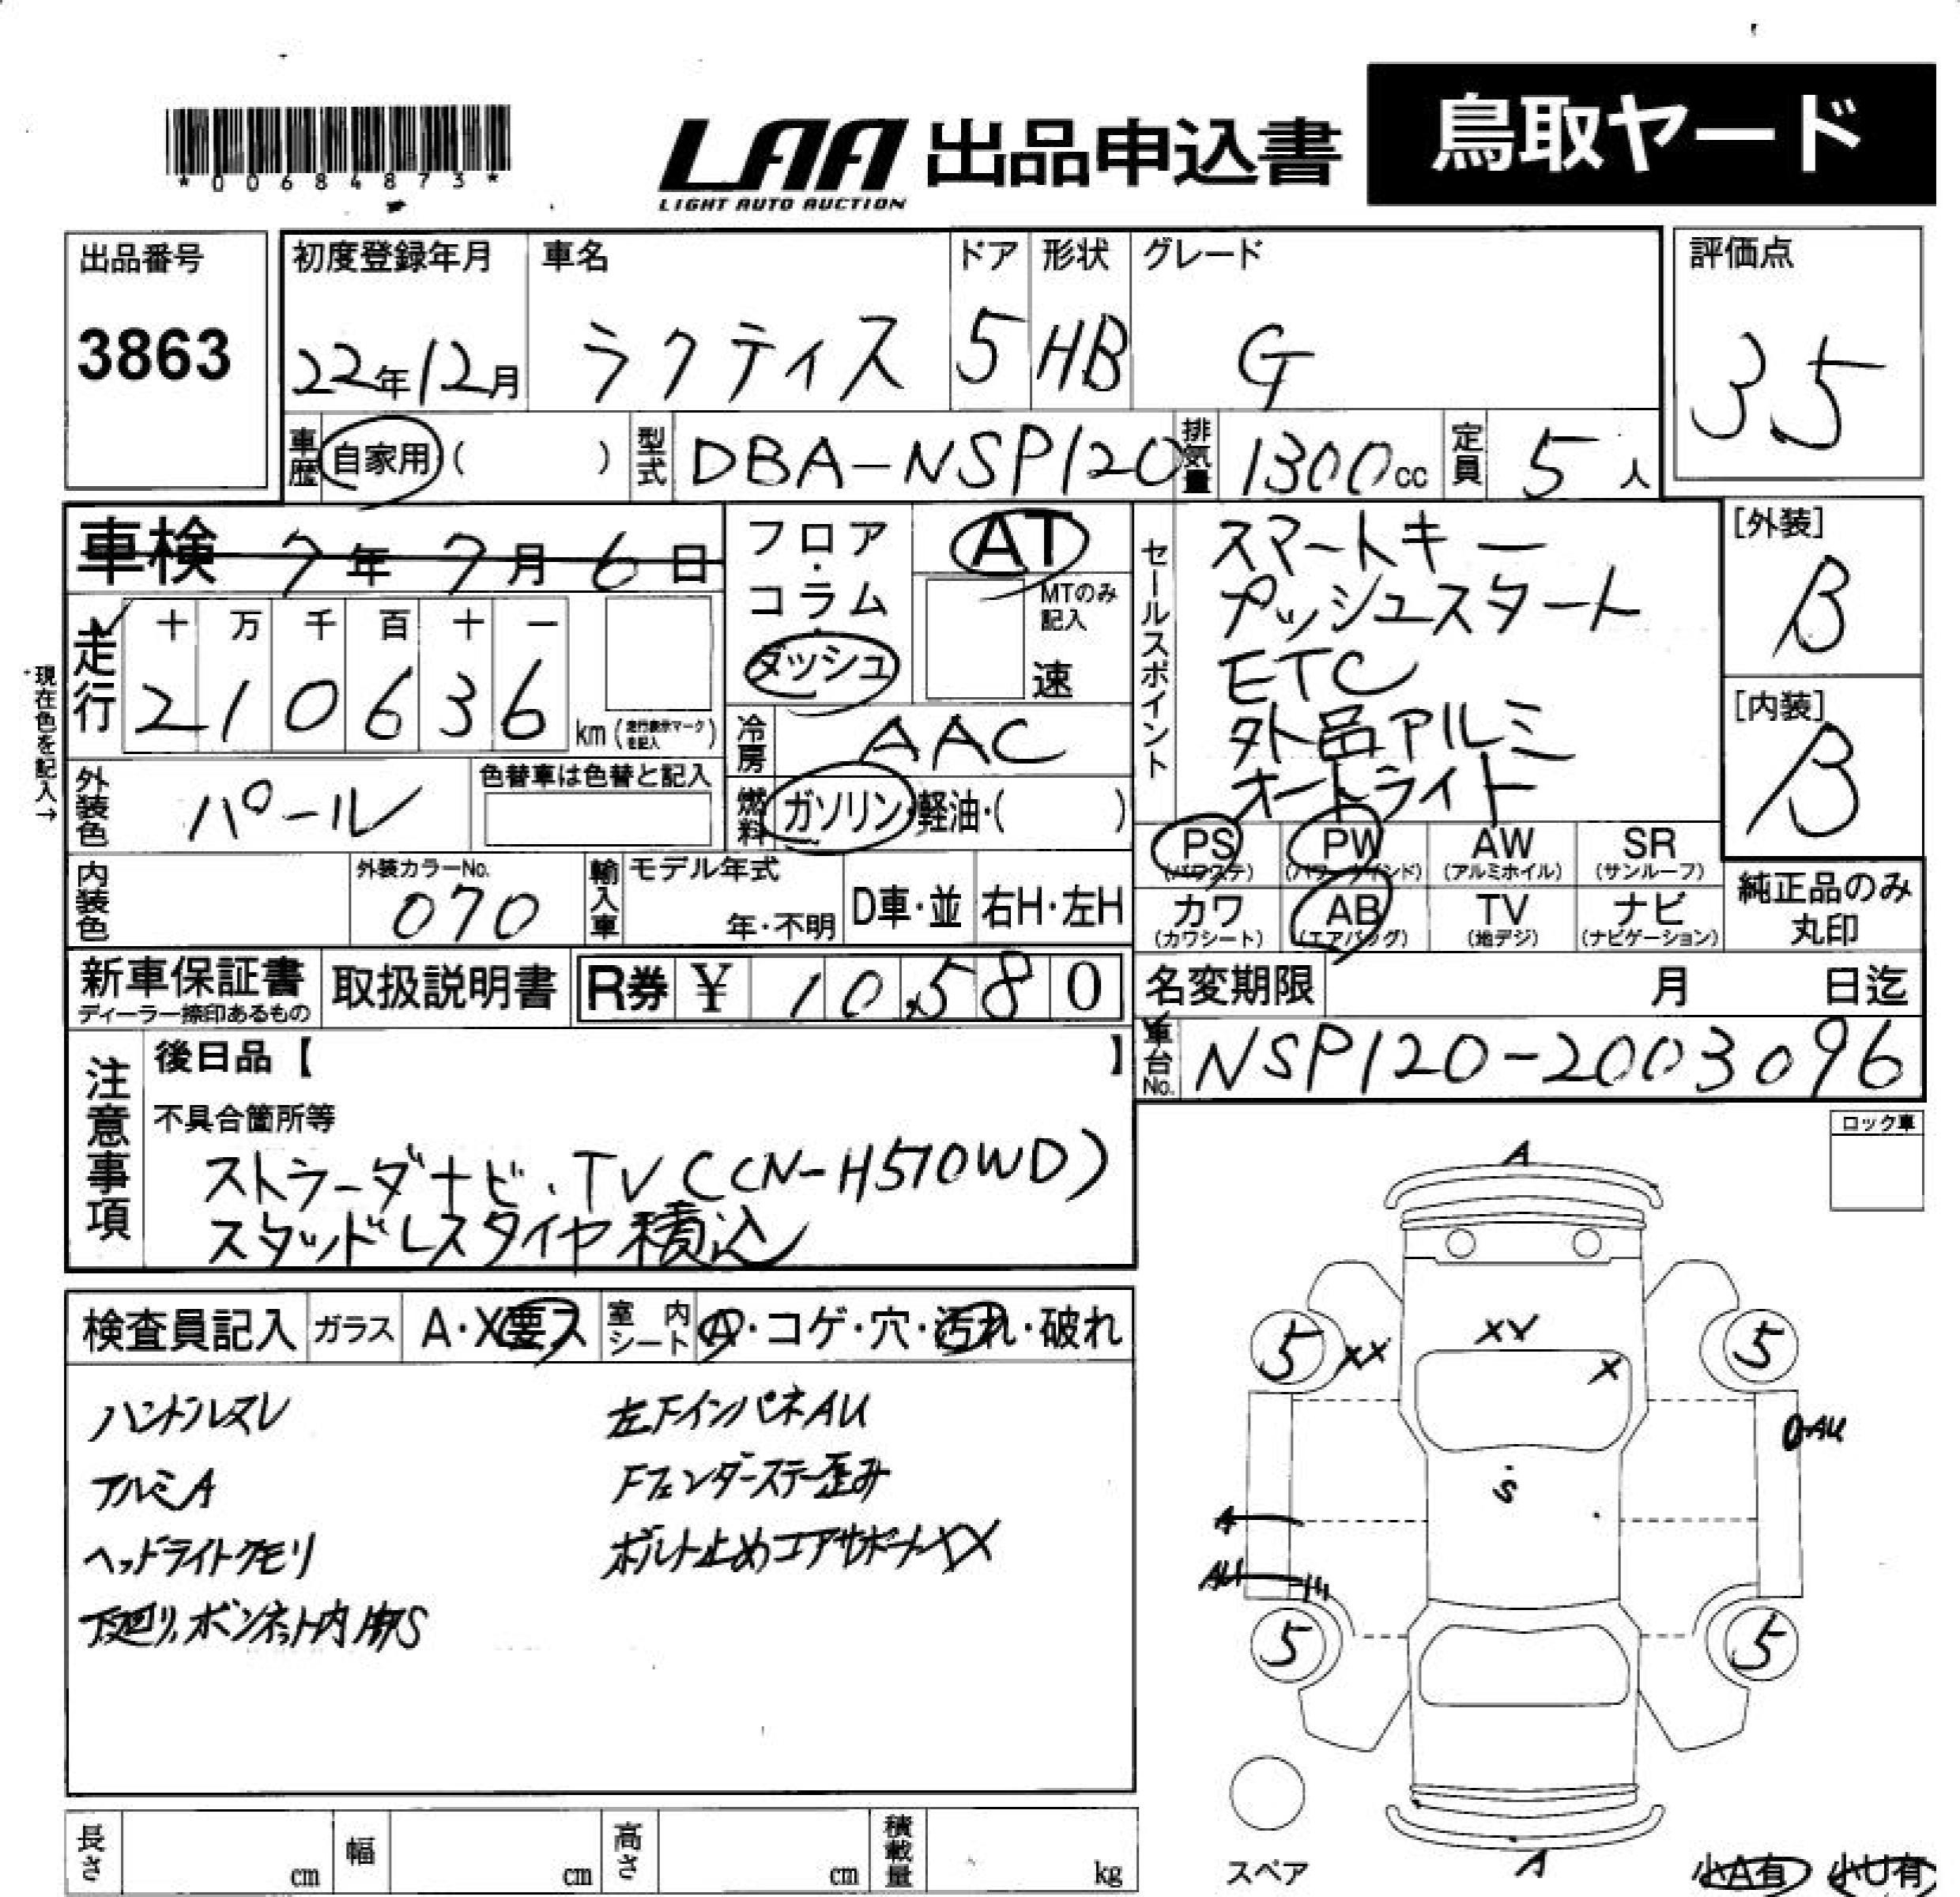 *00684873*
LAA 出品申込書 鳥取ヤード
LIGHT AUTO AUCTION
出品番号
3863
初度登録年月 車名 ドア 形状 グレード 評価点
22年12月 ラクティス 5 HB G 3.5
車歴 自家用( ) 型式 DBA-NSP120 排気量 1300cc 定員 5人
車検 7年7月6日
フロア・コラム・ダッシュ
AT
MTのみ記入
速
走行 十 万 千 百 十 一
210636 km(走行表示マークを記入)
現在色を記入→
冷房 AAC
燃料 ガソリン・軽油・( )
外装色 パール 色替車は色替と記入
内装色 外装カラーNo. 070
輸入車 モデル年式 年・不明 D車・並 右H・左H
セールスポイント
スマートキー
プッシュスタート
ETC
外品アルミ
オートライト
[外装]
B
[内装]
B
PS (パワステ) PW (パワーウインド) AW (アルミホイル) SR (サンルーフ)
カワ (カワシート) AB (エアバッグ) TV (地デジ) ナビ (ナビゲーション)
純正品のみ丸印
新車保証書 ディーラー捺印あるもの 取扱説明書 R券 ¥ 10,580
名変期限 月 日迄
車台No. NSP120-2003096
注意事項
後日品【 】
不具合箇所等
ストラーダナビ・TV (CN-H510WD)
スタッドレスタイヤ積込
ロック車
検査員記入 ガラス A・X要ス 室内シート A・コゲ・穴・汚れ・破れ
ハンドルスレ
アルミA
ヘッドライトクモリ
下廻り、ボンネット内S
左FインパネAU
Fフェンダーステー歪み
ボルト止めコアサポートXX
A
XV
X
XX
5
5
AU
S
A
AU
5
5
A
スペア
小A有 小U有
長さ cm 幅 cm 高さ cm 積載量 kg